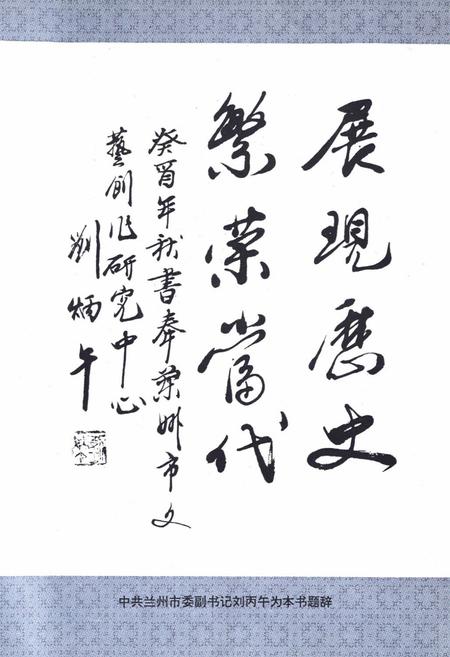 展現歷史
繁荣當代
癸酉年秋書奉蘭州市文
藝創作研究中心
劉炳午
中共兰州市委副书记刘丙午为本书题辞